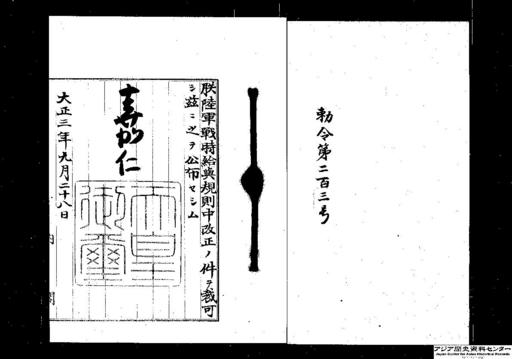 勅令第二百三号
朕陸軍戦時給与規則中改正ノ件ヲ裁可
シ茲ニ之ヲ公布セシム
嘉仁
天皇御璽
大正三年九月二十八日
内閣
アジア歴史資料センター
Japan Center for Asian Historical Records